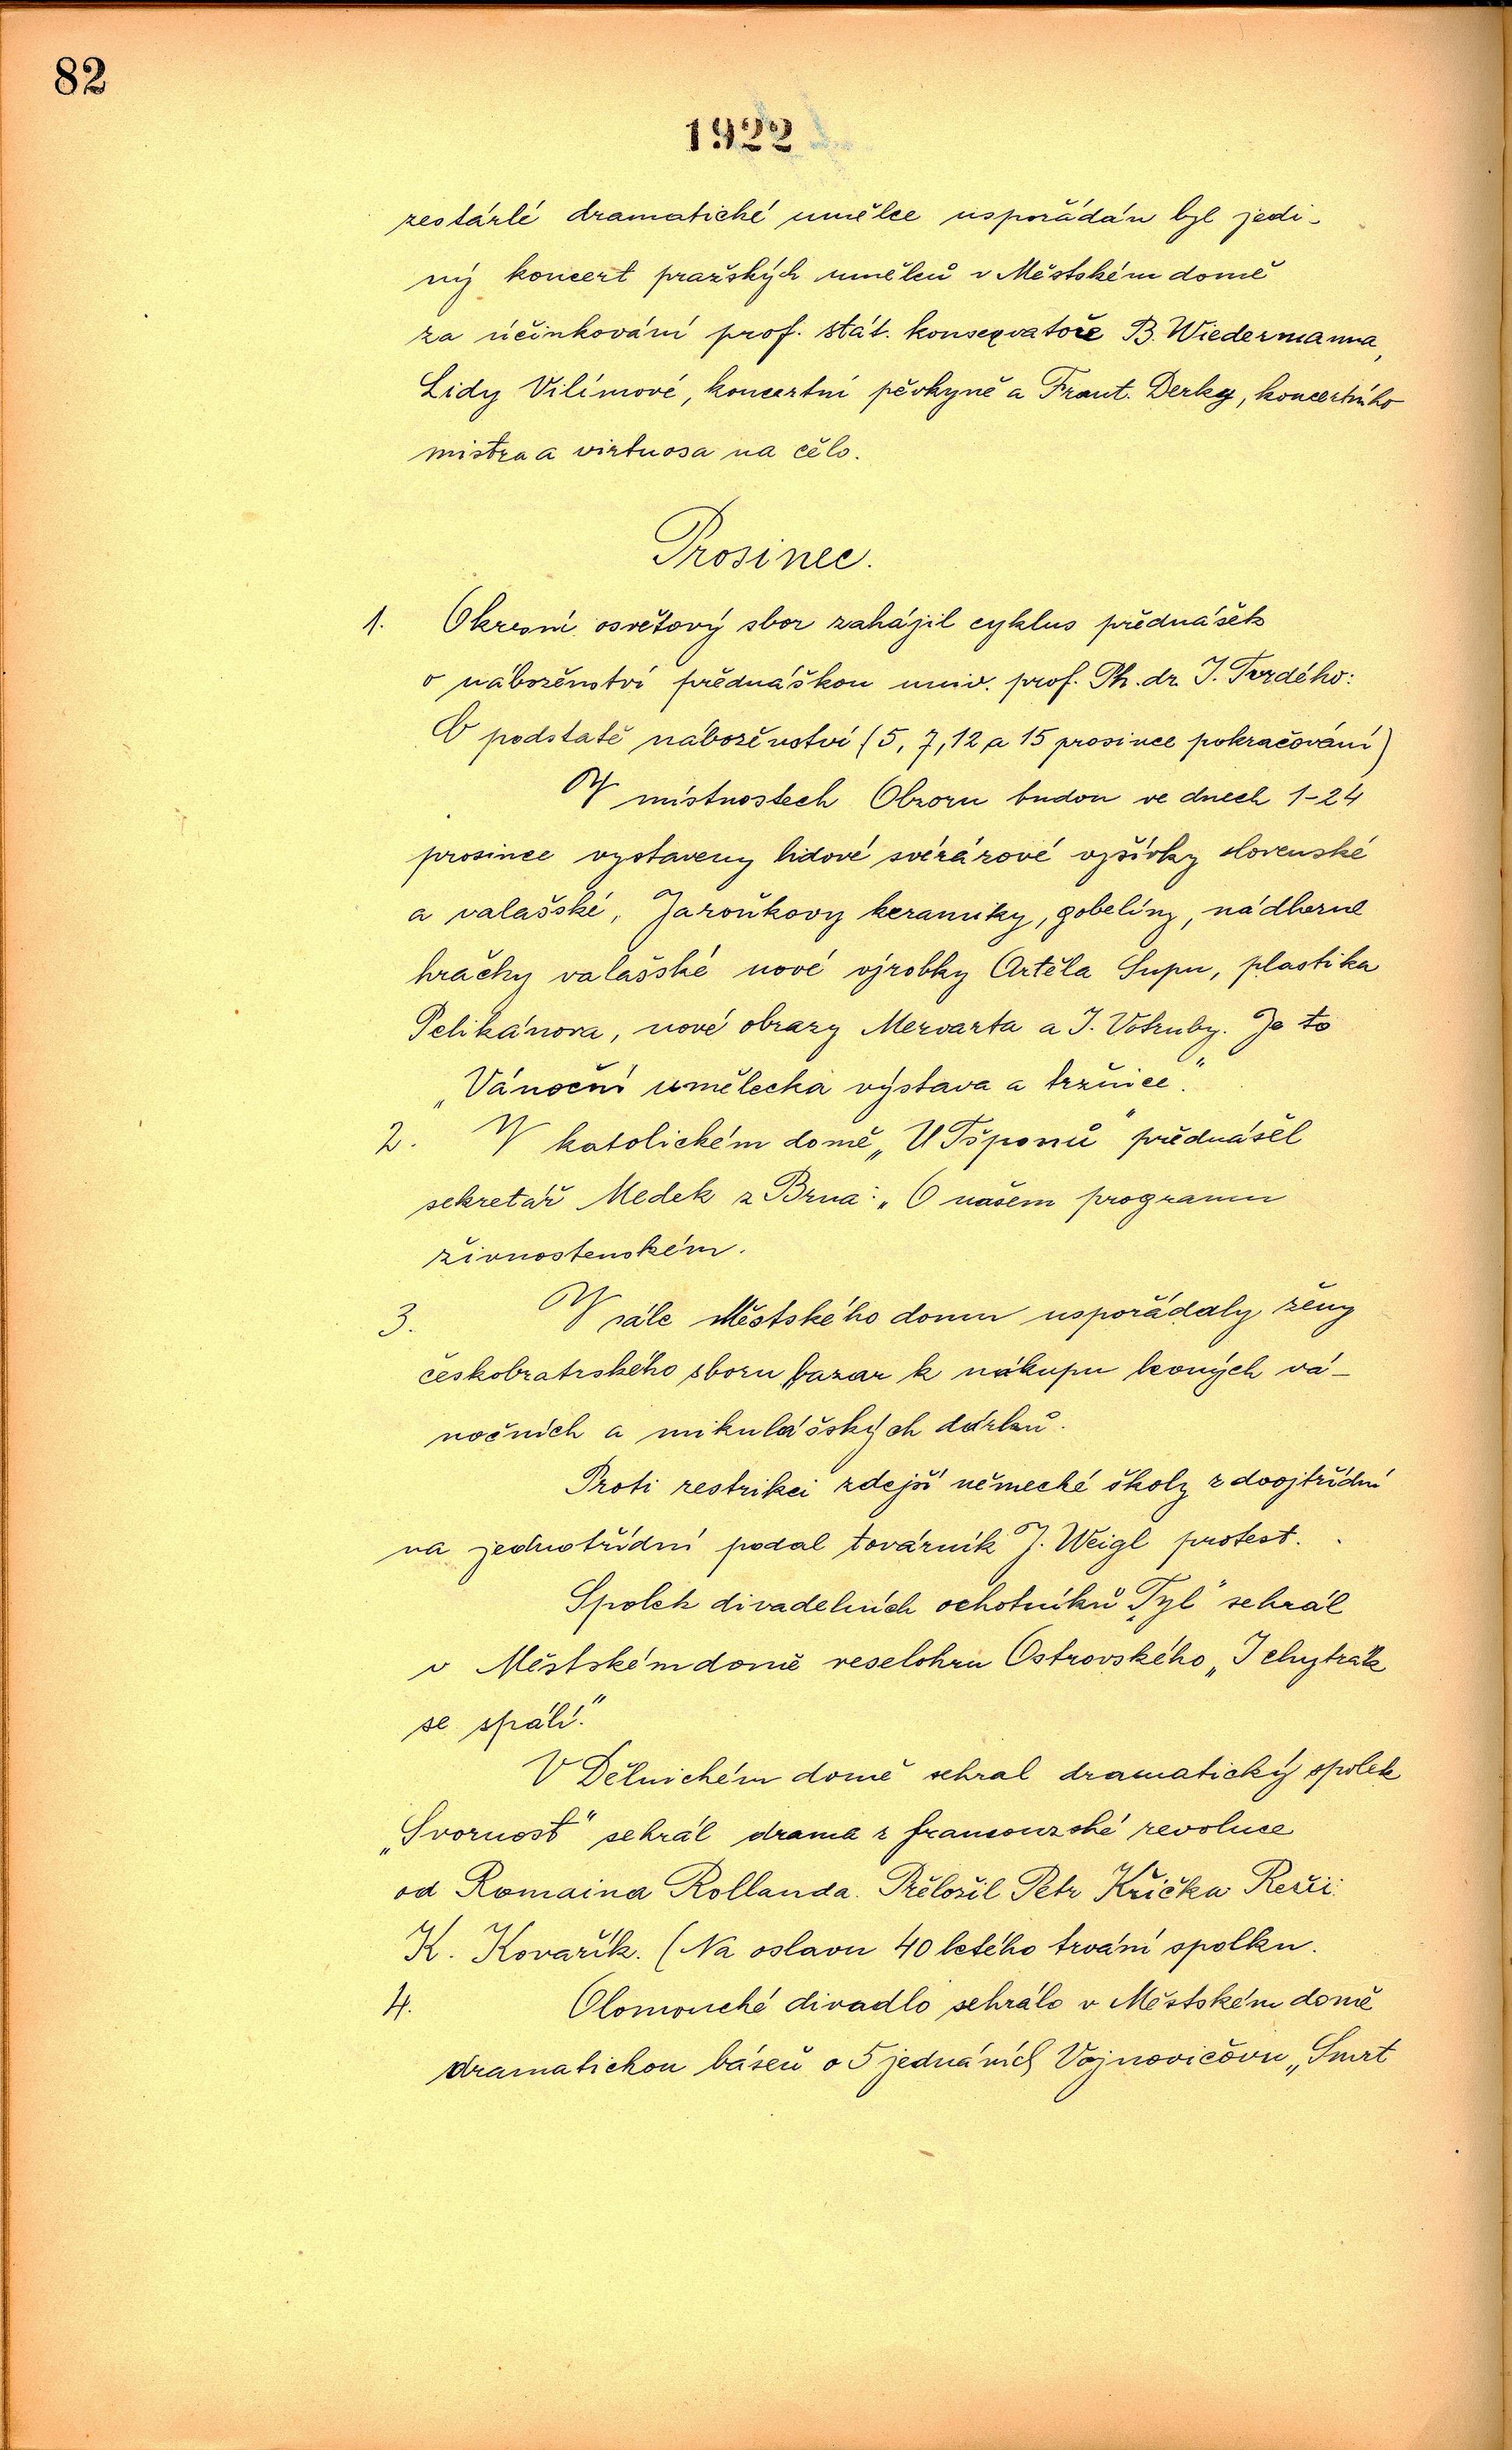 82
1922
zestárlé dramatické umělce uspořádán byl jedi-
ný koncert pražských umělců v Městském domě
za účinkování prof. stát. konservatoře B. Wiedermanna,
Lidy Vilímové, koncertní pěvkyně a Frant. Derky, koncertního
mistra a virtuosa na čelo.
Prosinec.
1. Okresní osvětový sbor zahájil cyklus přednášek
o náboženství přednáškou univ. prof. Ph. dr. J. Tvrdého:
O podstatě náboženství (5, 7, 12, a 15 prosince pokračování)
V místnostech Obzoru budou ve dnech 1-24
prosince vystaveny lidové svérázové vyšívky slovenské
a valašské, Jaroňkovy keramiky, gobelíny, nádherné
hračky valašské nové výrobky Artěla Supu, plastika
Pelikánova, nové obrazy Mervarta a J. Votruby. Je to
„Vánoční umělecká výstava a tržnice."
2. V katolickém domě „U Tšponů" přednášel
sekretář Medek z Brna: „O našem programu
živnostenském.
3. V sále Městského domu uspořádaly ženy
českobratrského sboru bazar k nákupu levných vá-
nočních a mikulášských dárků.
Proti restrikci zdejší německé školy z dvojtřídní
na jednotřídní podal továrník J. Weigl protest.
Spolek divadelních ochotníků „Tyl" sehrál
v Městském domě veselohru Ostrovského „I chytrák
se spálí."
V Dělnickém domě sehral dramatický spolek
„Svornost" sehrál drama z francouzské revoluce
od Romaina Rollanda. Přeložil Petr Křička Režii:
K. Kovařík. (Na oslavu 40 letého trvání spolku.
4. Olomoucké divadlo sehrálo v Městském domě
dramatickou báseň o 5 jednáních Vojnovičovu „Smrt